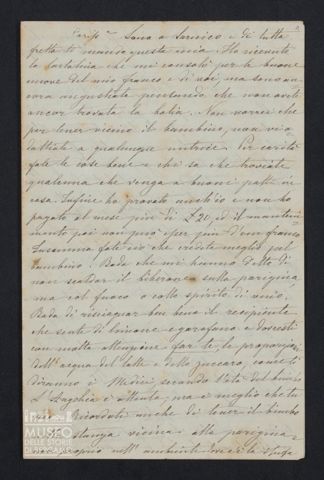 Cariss.ma Sono a Sarnico e di tutta
fretta ti mando questa mia. Ho ricevuto
la cartolina che mi consolò per le buone
nuove del mio franco e di voi, ma sono an-
cora angustiata pensando che non avete
ancor trovata la balia. Non vorrei che
per tener vicino il bambino, vi a-
dattiate a qualunque nutrice. Per carità
fate le cose bene e chi sa che troviate
qualcuna che venga a buoni patti in
casa. Infine ho provato anch'io e non ho
pagato al mese più di £ 20, ed il manteni-
mento poi non può esser più d'un franco
Susanna fate ciò che credete meglio pel
bambino. Bada che mi hanno detto di
non scaldar il biberon sulla
ma col fuoco o collo spirito di vino.
Bada di risciaquar ben bene il recipiente
che sente di limone e garofano e dovresti
con molta attenzione far te le proporzioni
dell'acqua del latte e dello zuccaro, come ti
diranno i Medici secondo l'età del bimbo
è attenta, ma è meglio che tu
Ricordati anche di tener il bimbo
stanza vicina alla
nell'ambiente ove è la stufa
MUSEO
DELLE STORIE
DI BERGAMO